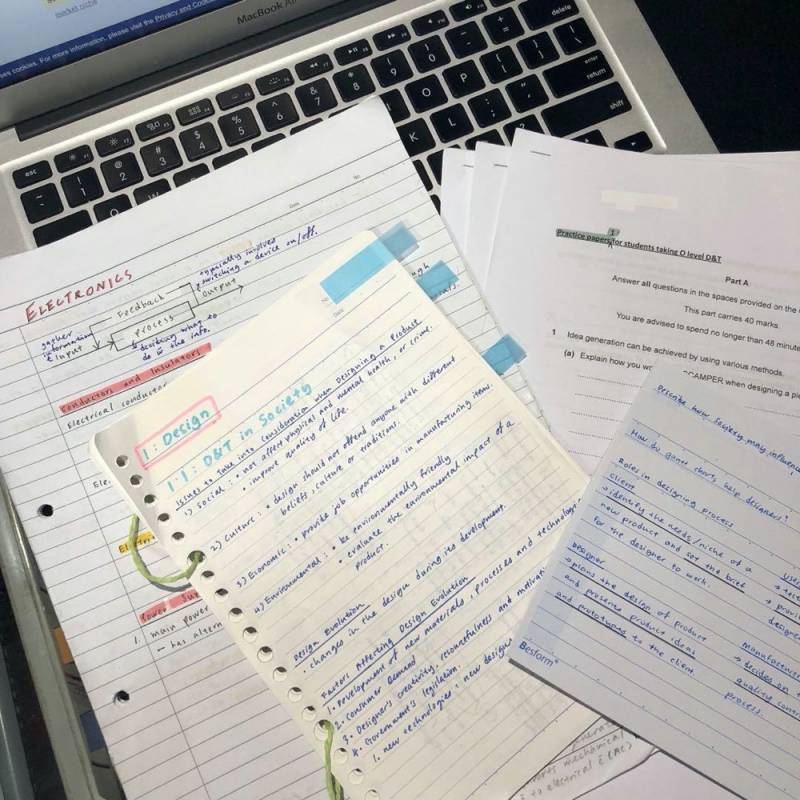 market niche
For more information, please visit the Privacy and Cookie
MacBook Air
esc
delete
enter
return
shift
ELECTRONICS
Feedback
Process
Output
typically involves
switching a device on/off.
gather
information
Input
deciding what to
do w the info.
Conductors and Insulators
Electrical conductor
Ele.
Power Su
1. main power
- has altern
No.
Date
1 : Design
1.1 : D&T in Society
Issues to take into consideration when designing a product
1) Social : • not affect physical and mental health, or crime.
• improve quality of life.
2) Culture : • design should not offend anyone with different
beliefs, culture or traditions.
3) Economic : • provide job opportunities in manufacturing items.
4) Environmental : • be environmentally friendly
• evaluate the environmental impact of a
product.
Design Evolution
• changes in the design during its development.
Factors Affecting Design Evolution
1. Development of new materials, processes and technolog
2. Consumer Demand
3. Designer's creativity, resourcefulness and motivati
4. Government's legislation.
1. new technologies : new design
Practice papers 1 for students taking O level D&T
Part A
Answer all questions in the spaces provided on the
This part carries 40 marks.
You are advised to spend no longer than 48 minute
1 Idea generation can be achieved by using various methods.
(a) Explain how you wo SCAMPER when designing a pie
Describe how society may influence
How do gantt charts help designers?
Roles in designing process
client
→ identify the needs/niche of a
new product and set the brief
for the designer to work.
designer
→ plans the design of product
and presents product ideas
and prototypes to the client.
User
→ provi
designe
Manufacture
→ decides on
quality contr
process.
Besform
mechanical
to electrical E (AC)